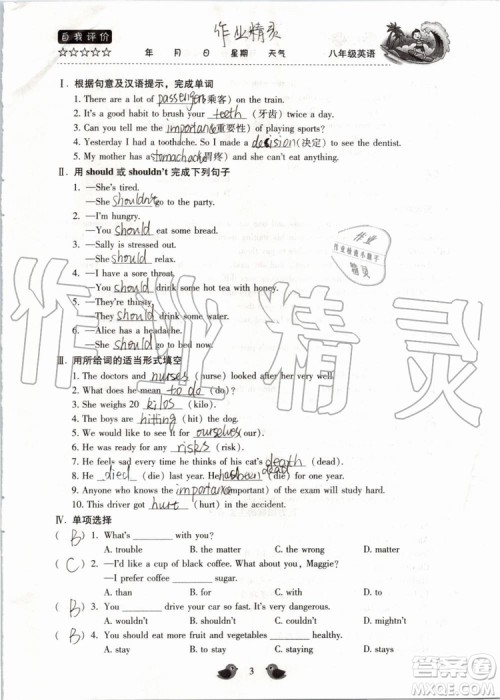 作业精灵
自我评价
☆☆☆☆☆ 年 月 日 星期 天气 八年级英语
Ⅰ. 根据句意及汉语提示，完成单词
1. There are a lot of passengers(乘客) on the train.
2. It's a good habit to brush your teeth (牙齿) twice a day.
3. Can you tell me the importance(重要性) of playing sports?
4. Yesterday I had a toothache. I made a decision (决定) to see the dentist.
5. My mother has a stomachache(胃疼) and she can't eat anything.
Ⅱ. 用 should 或 shouldn't 完成下列句子
1. —She's tired.
—She shouldn't go to the party.
2. —I'm hungry.
—You should eat some bread.
3. —Sally is stressed out.
—She should relax.
4. —I have a sore throat.
—You should drink some hot tea with honey.
5. —They're thirsty.
—They should drink some water.
6. —Alice has a headache.
—She should go to bed now.
Ⅲ. 用所给词的适当形式填空
1. The doctors and nurses (nurse) looked after her very well.
2. What does he mean to do (do)?
3. She weighs 20 kilos (kilo).
4. The boys are hitting (hit) the dog.
5. We would like to buy ourselves (our) a bike.
6. He was ready for any risks (risk).
7. He feels sad every time he thinks of his cat's death (dead).
8. He died (die) last year. He has been dead (die) for one year.
9. Anyone who knows the importance(important) of the exam will study hard.
10. This driver got hurt (hurt) in the accident.
Ⅳ. 单项选择
( B ) 1. What's ________ with you?
A. trouble B. the matter C. the wrong D. matter
( C ) 2. —I'd like a cup of black coffee. What about you, Maggie?
—I prefer coffee ________ sugar.
A. than B. for C. with D. to
( B ) 3. You ________ drive your car so fast. It's very dangerous.
A. wouldn't B. shouldn't C. couldn't D. mightn't
( B ) 4. You should eat more fruit and vegetables ________ healthy.
A. stay B. to stay C. stays D. to stays
3
作业
精灵
作业精灵
答案圈